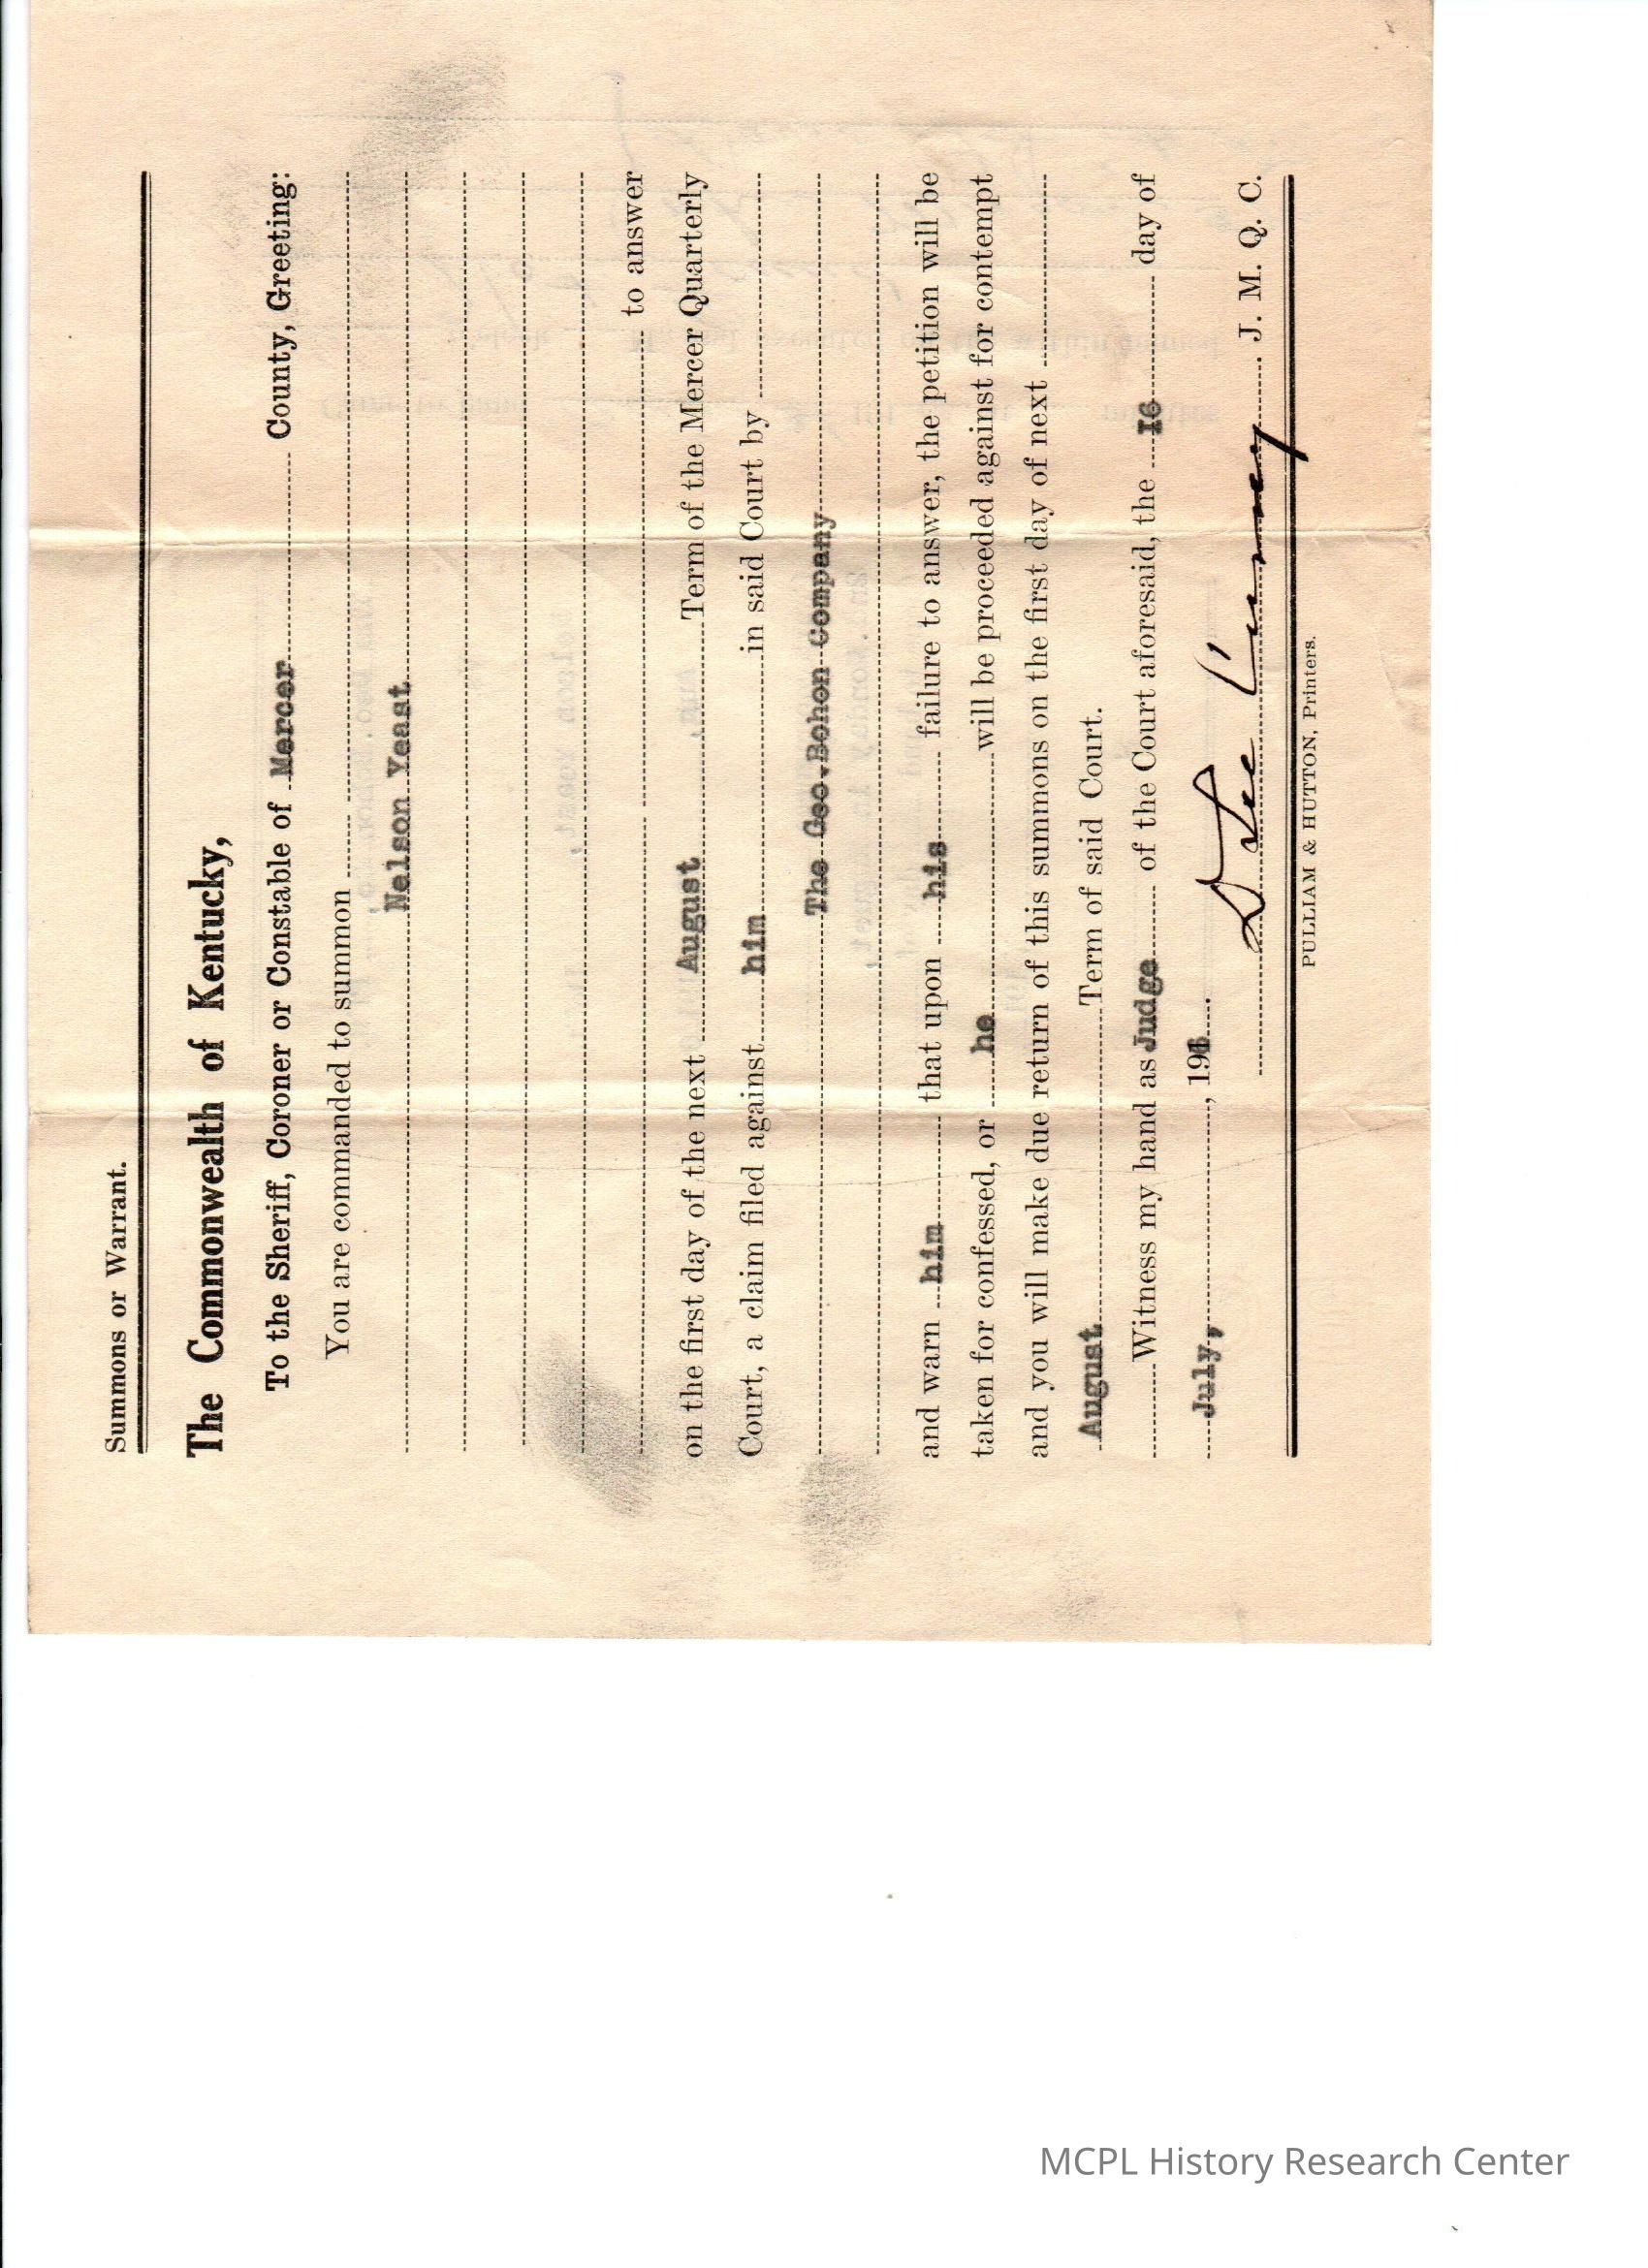 Summons or Warrant.
The Commonwealth of Kentucky,
To the Sheriff, Coroner or Constable of Mercer County, Greeting:
You are commanded to summon
Nelson Yeast
to answer
on the first day of the next August Term of the Mercer Quarterly
Court, a claim filed against him in said Court by
The Geo.Bohon Company
and warn him that upon his failure to answer, the petition will be
taken for confessed, or he will be proceeded against for contempt
and you will make due return of this summons on the first day of next
August Term of said Court.
Witness my hand as Judge of the Court aforesaid, the I6 day of
July, , 191
J. M. Q. C.
PULLIAM & HUTTON, Printers.
MCPL History Research Center